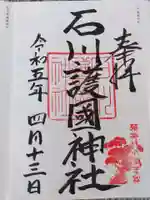 奉拝
石川護國神社
令和五年 四月十三日